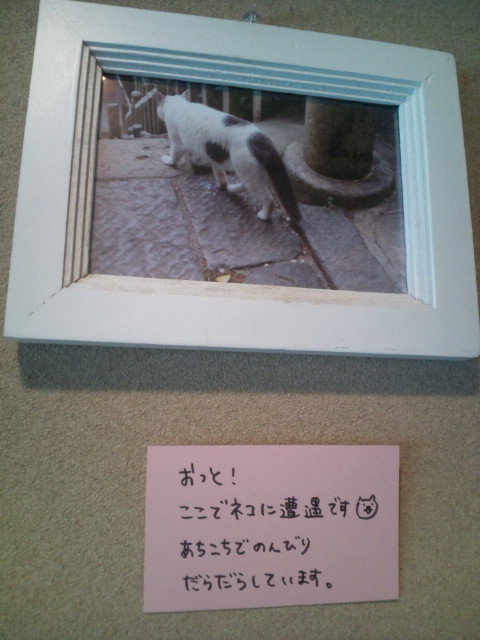 おっと!
ここでネコに遭遇です
あちこちでのんびり
だらだらしています。